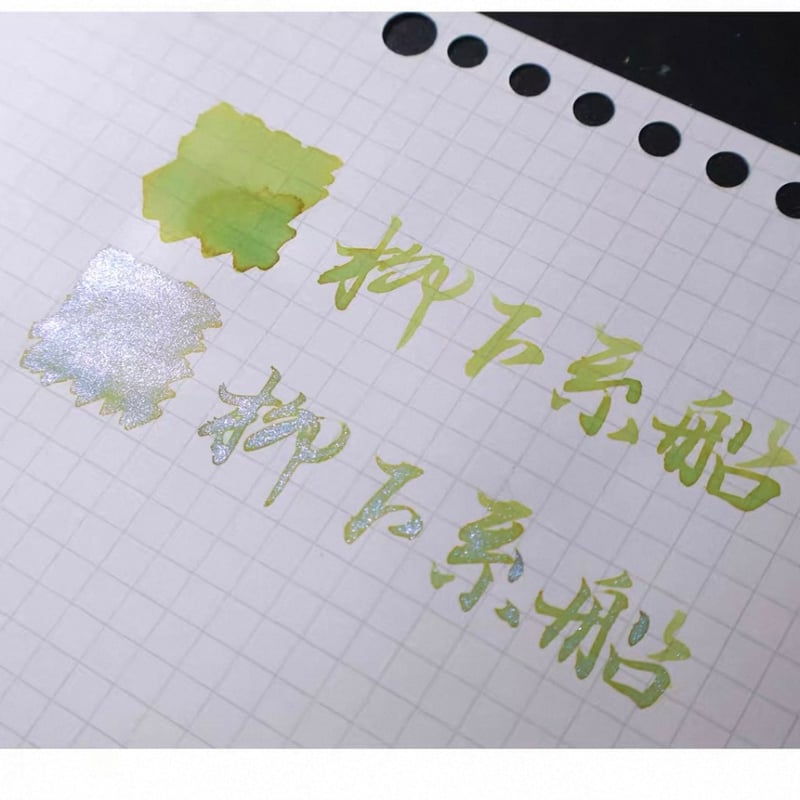 柳下系船
柳下系船